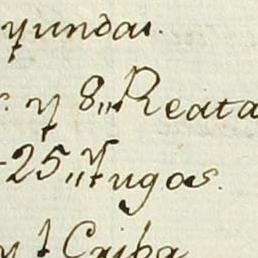 yundai.
y 8,, Reata
25,, Yugos.
y 1 Criba